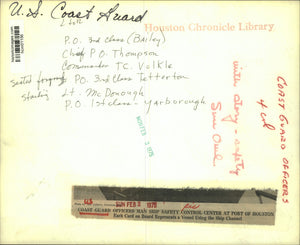 U.S. Coast Guard
Houston Chronicle Library
P.O. 3rd Class (Bailey)
Chief P.O. Thompson
Commander T.C. Volkle
seated foreground P.O. 3rd Class Tetterton
standing Lt. McDonough
P.O. 1st class - Yarborough
COAST GUARD OFFICERS
4 col
with story - safety
Sun Oval
SUN FEB 2 1975
COAST GUARD OFFICERS MAN SHIP SAFETY CONTROL CENTER AT PORT OF HOUSTON
Each Card on Board Represents a Vessel Using the Ship Channel